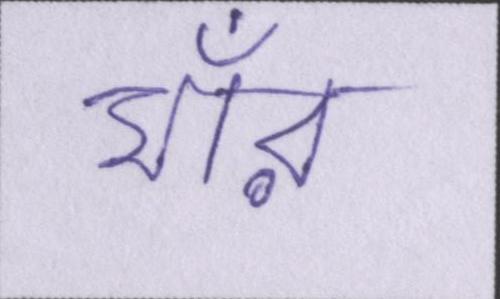 যাঁর